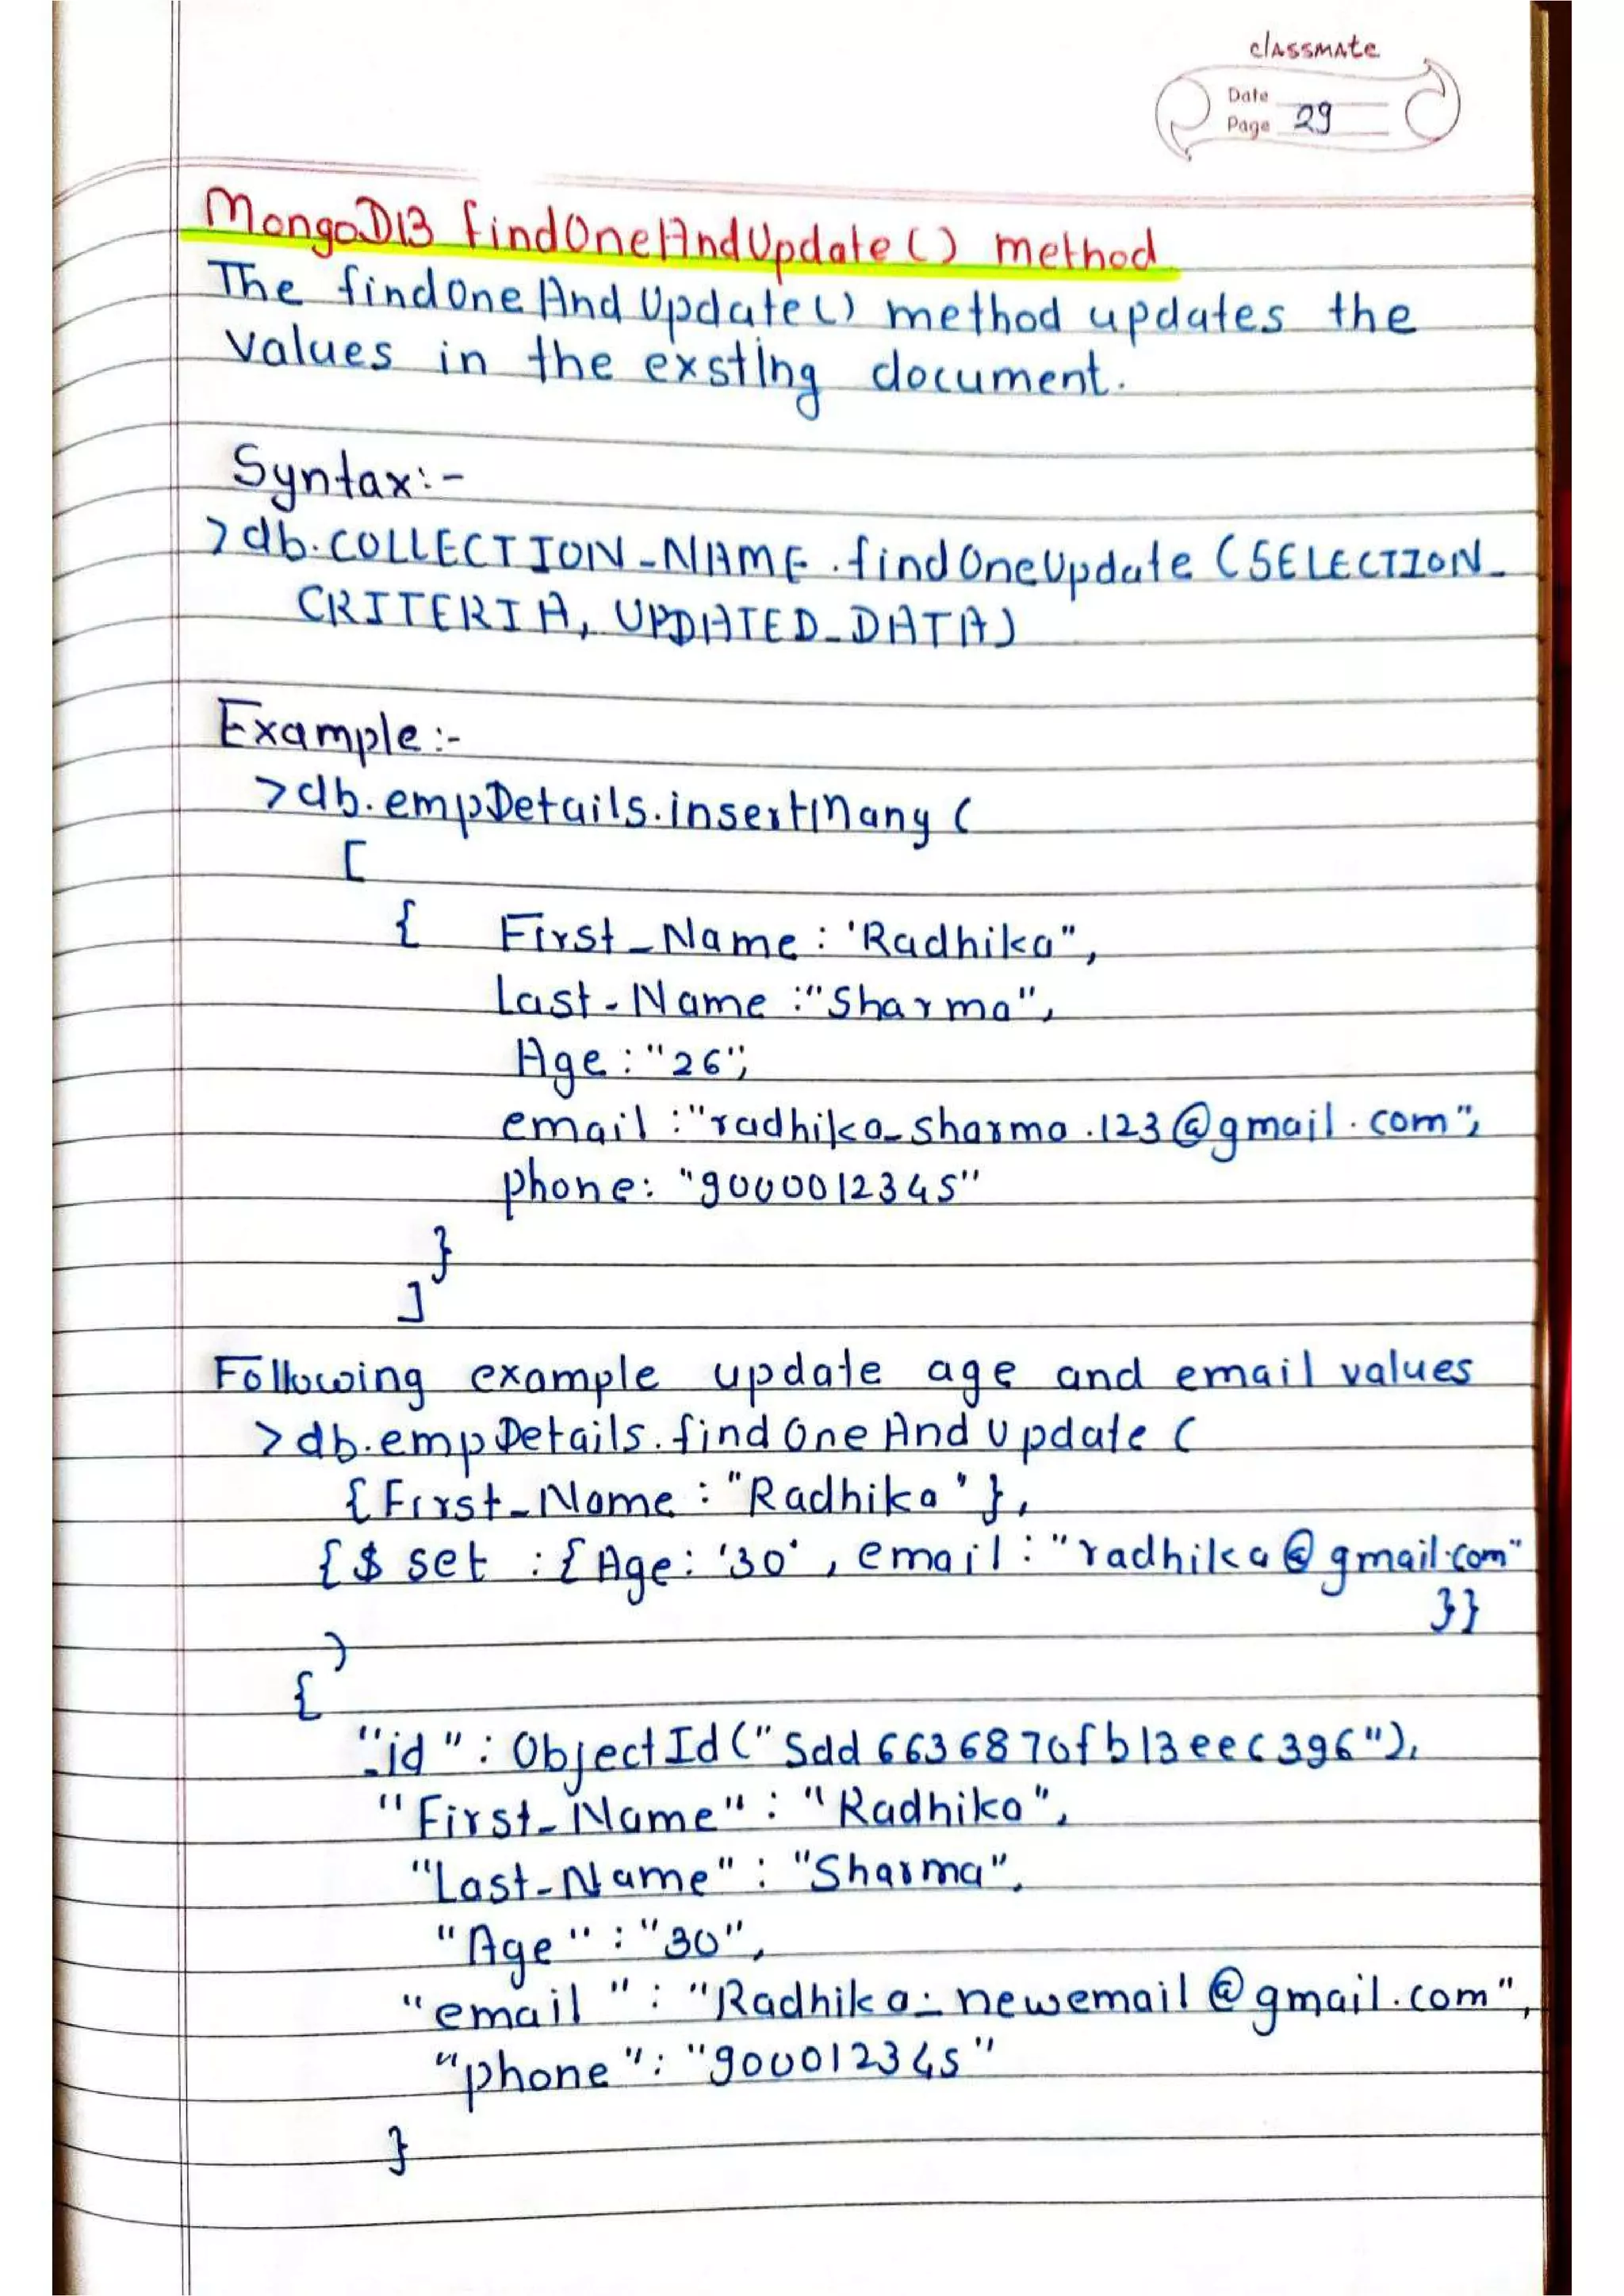 classmate
Date
Page 29
MongoDB findOneAndUpdate() method
The findOneAndUpdate() method updates the
values in the exsting document.
Syntax:-
>db.COLLECTION_NAME.findOneUpdate(SELECTION_
CRITERIA, UPDATED_DATA)
Example:-
>db.empDetails.insertMany(
[
{ First_Name: 'Radhika",
Last-Name:"Sharma",
Age:"26",
email:"radhika_sharma.123@gmail.com",
phone: "9000012345"
}
]
Following example update age and email values
>db.empDetails.findOneAndUpdate(
{First_Name: "Radhika'},
{$ set :{Age: '30', email: "radhika@gmail.com"
}}
)
{
"_id" : ObjectId("5dd6636870fb13eec396"),
"First_Name" : "Radhika",
"Last-Name" : "Sharma",
"Age" : "30",
"email" : "Radhika_newemail@gmail.com",
"phone": "900012345"
}